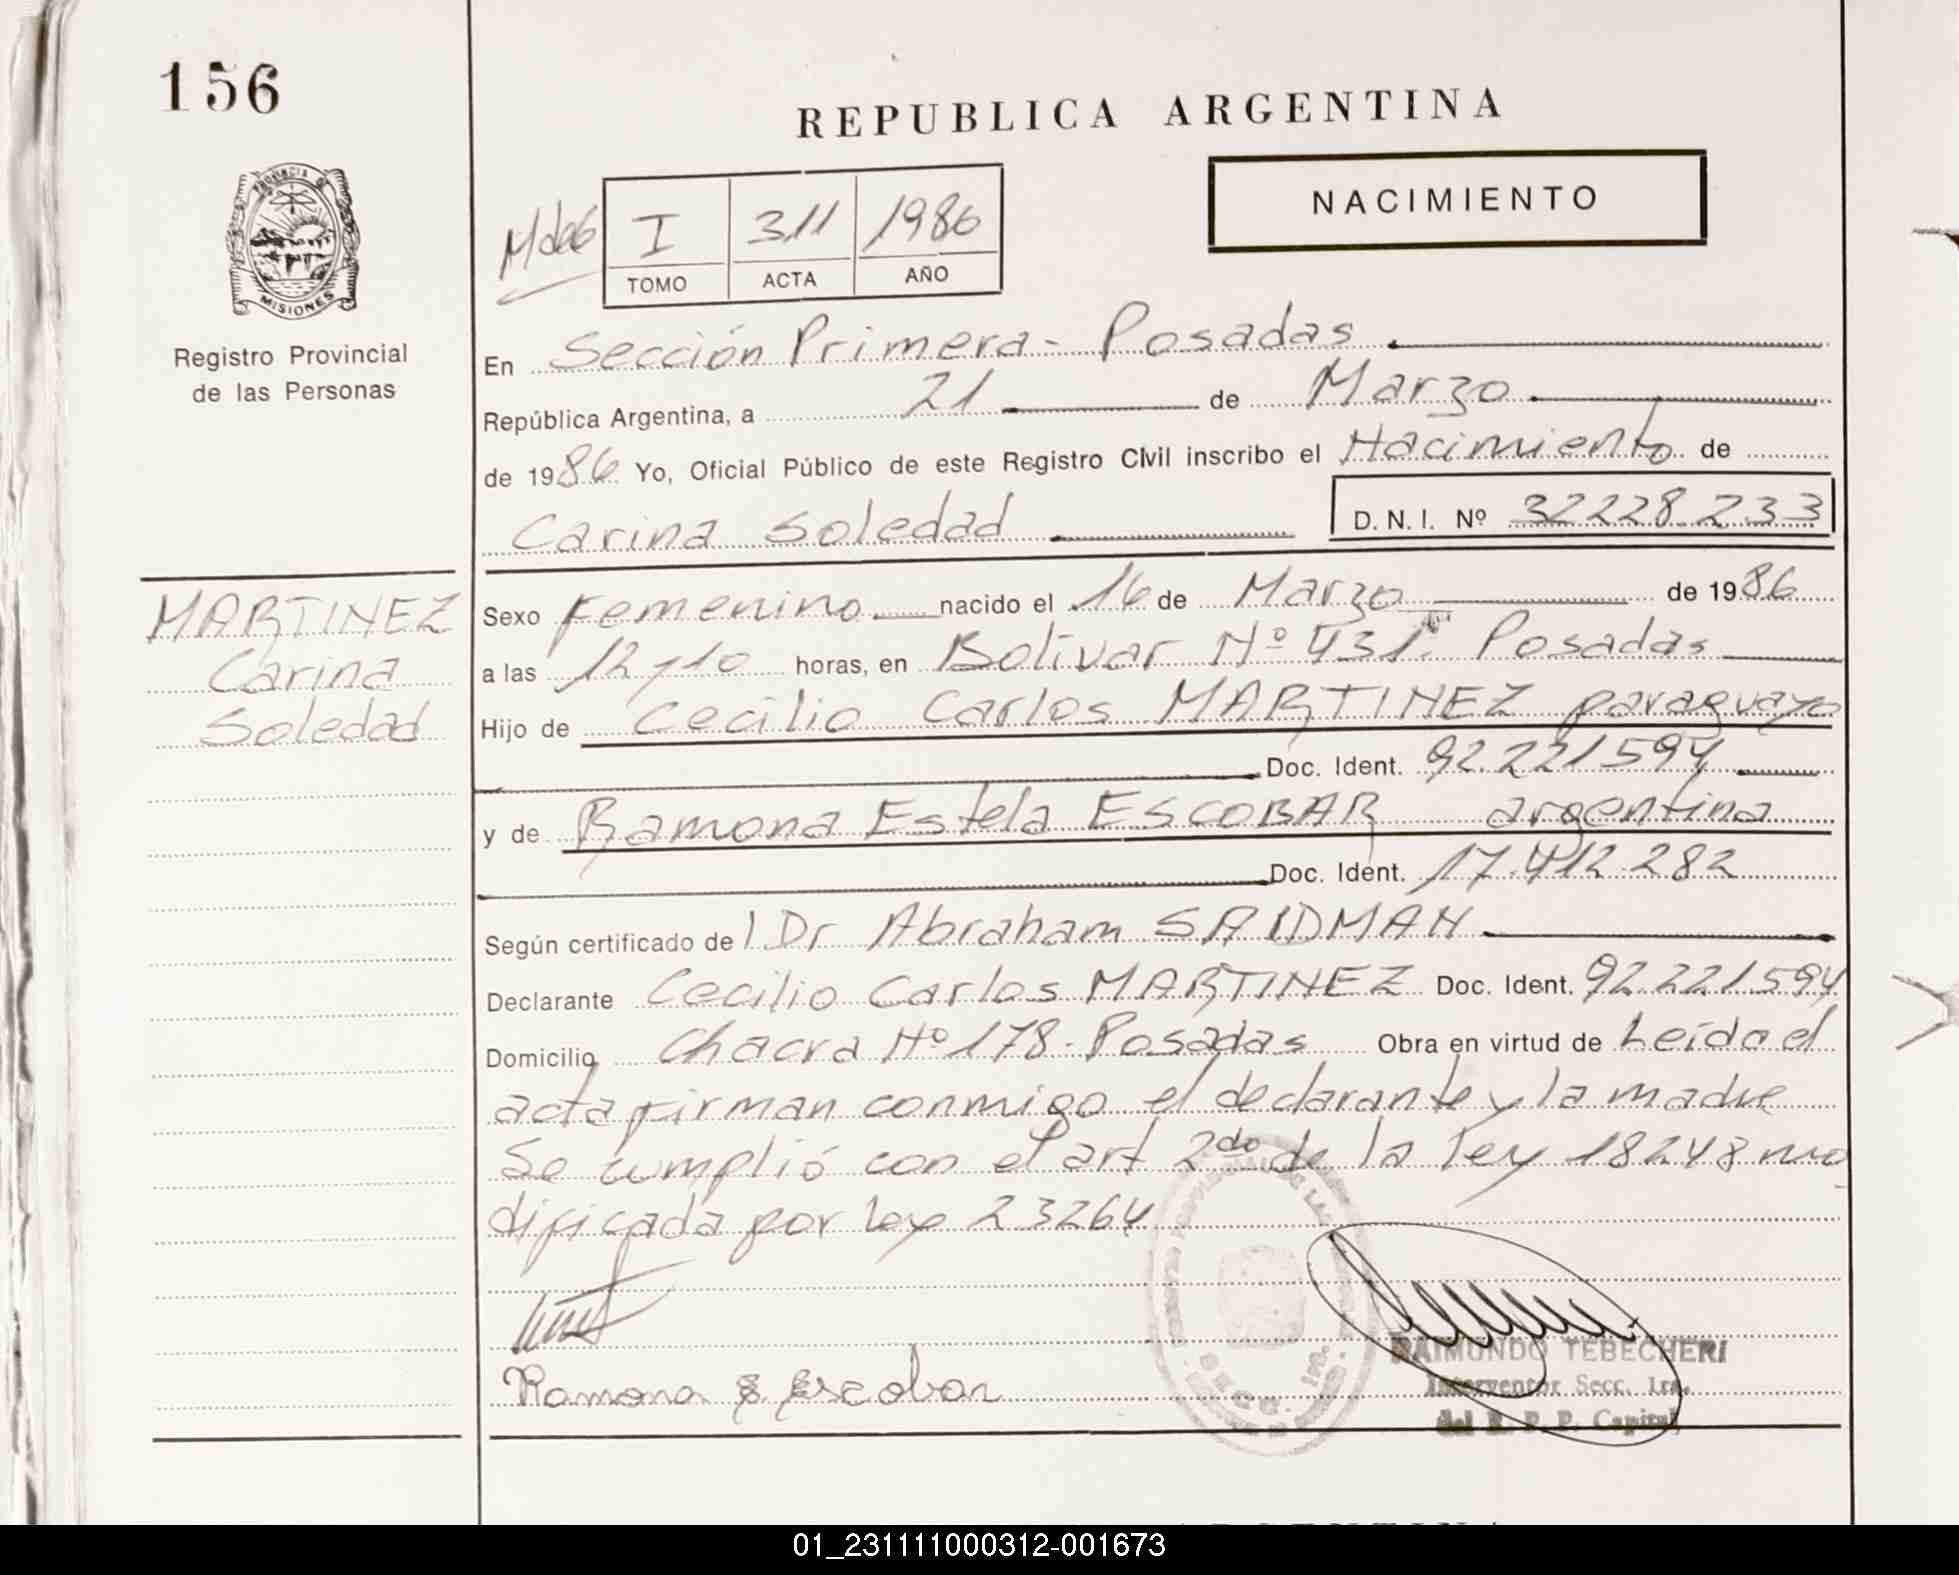 156
REPUBLICA ARGENTINA
PROVINCIA DE
MISIONES
NACIMIENTO
I 311 1986
TOMO ACTA AÑO
Registro Provincial
de las Personas
En Sección Primera - Posadas
República Argentina, a 21 de Marzo
de 1986 Yo, Oficial Público de este Registro Civil inscribo el Nacimiento de
Carina Soledad D.N.I. Nº 32228233
MARTINEZ
Carina
Soledad
Sexo Femenino nacido el 16 de Marzo de 1986
a las 12 y 10 horas, en Bolivar Nº 431. Posadas
Hijo de Cecilio Carlos MARTINEZ paraguayo
Doc. Ident. 92.221594
y de Ramona Estela ESCOBAR argentina
Doc. Ident. 17.412.282
Según certificado del Dr Abraham SAIDMAN
Declarante Cecilio Carlos MARTINEZ Doc. Ident. 92.221.594
Domicilio Chacra Nº 178 - Posadas Obra en virtud de Leída el
acta firman conmigo el declarante y la madre
Se cumplió con el art 2do de la ley 18248 mo
dificada por ley 23264
Ramona E Escobar
RAIMUNDO TEBECHERI
Interventor Secc. 1ra.
del R. P. P. Capital
01_231111000312-001673